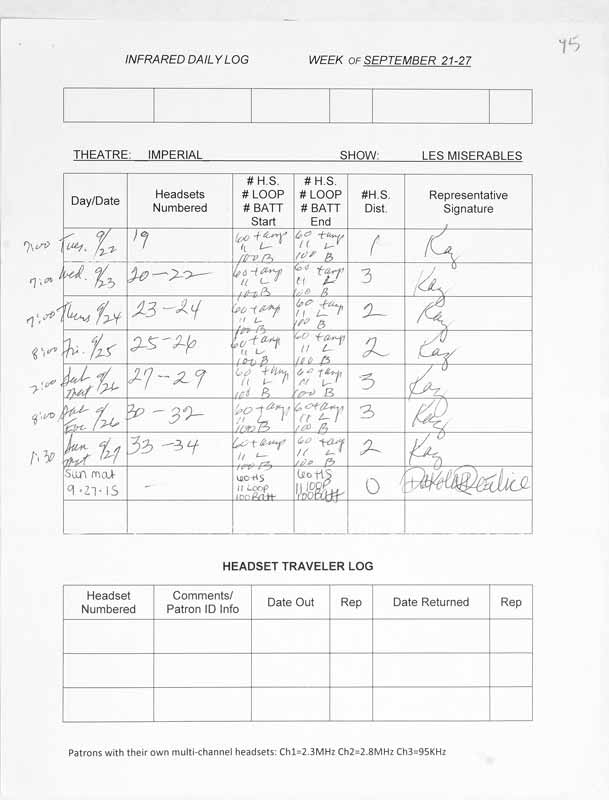 45
INFRARED DAILY LOG WEEK OF SEPTEMBER 21-27
THEATRE: IMPERIAL SHOW: LES MISERABLES
Day/Date Headsets Numbered # H.S. # LOOP # BATT Start # H.S. # LOOP # BATT End #H.S. Dist. Representative Signature
7:00 Tues. 9/22 19 60 + amp 11 L 100 B 60 + amp 11 L 100 B 1 Kaz
7:00 Wed. 9/23 20-22 60 + amp 11 L 100 B 60 + amp 11 L 100 B 3 Kaz
7:00 Thurs 9/24 23-24 60 + amp 11 L 100 B 60 + amp 11 L 100 B 2 Kaz
8:00 Fri. 9/25 25-26 60 + amp 11 L 100 B 60 + amp 11 L 100 B 2 Kaz
2:00 Sat mat 9/26 27-29 60 + amp 11 L 100 B 60 + amp 11 L 100 B 3 Kaz
8:00 Sat Eve 9/26 30-32 60 + amp 11 L 100 B 60 + amp 11 L 100 B 3 Kaz
1:30 Sun mat 9/27 33-34 60 + amp 11 L 100 B 60 + amp 11 L 100 B 2 Kaz
Sun mat 9.27.15 - 60 HS 11 LOOP 100 Batt 60 HS 11 LOOP 100 Batt 0
HEADSET TRAVELER LOG
Headset Numbered Comments/ Patron ID Info Date Out Rep Date Returned Rep
Patrons with their own multi-channel headsets: Ch1=2.3MHz Ch2=2.8MHz Ch3=95KHz